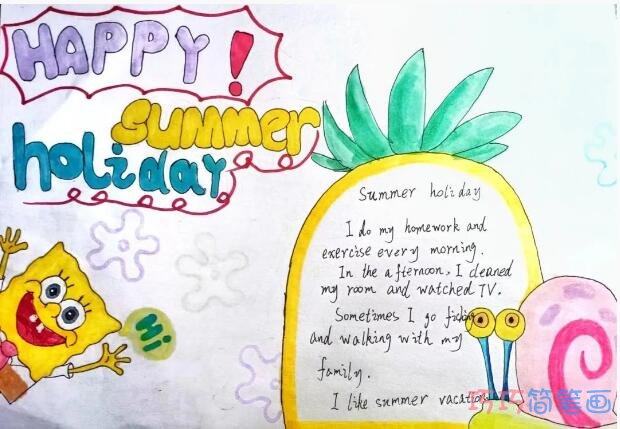 HAPPY!
summer
holiday
Hi
Summer holiday
I do my homework and
exercise every morning.
In the afternoon, I cleaned
my room and watched TV.
Sometimes I go fishing
and walking with my
family.
I like summer vacation
巧巧简笔画